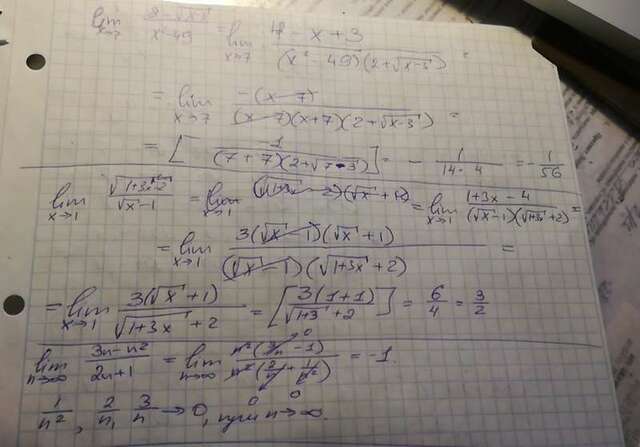 lim x→7 (2-√x-3)/(x²-49) = lim x→7 (4-x+3)/((x²-49)(2+√x-3)) =
= lim x→7 (-(x-7))/((x-7)(x+7)(2+√x-3)) =
= [(-1)/((7+7)(2+√7-3))] = - 1/(14·4) = -1/56
lim x→1 (√1+3x-2)/(√x-1) = lim x→1 (√x+1) = lim x→1 (1+3x-4)/((√x-1)(√1+3x+2)) =
= lim x→1 (3(√x-1)(√x+1))/((√x-1)(√1+3x+2)) =
= lim x→1 (3(√x+1))/(√1+3x+2) = [(3(1+1))/(√1+3+2)] = 6/4 = 3/2
lim n→∞ (3n-n²)/(2n+1) = lim n→∞ (n²(3/n-1))/(n²(2/n+1/n²)) = -1.
1/n², 2/n, 3/n → 0, при n→∞.